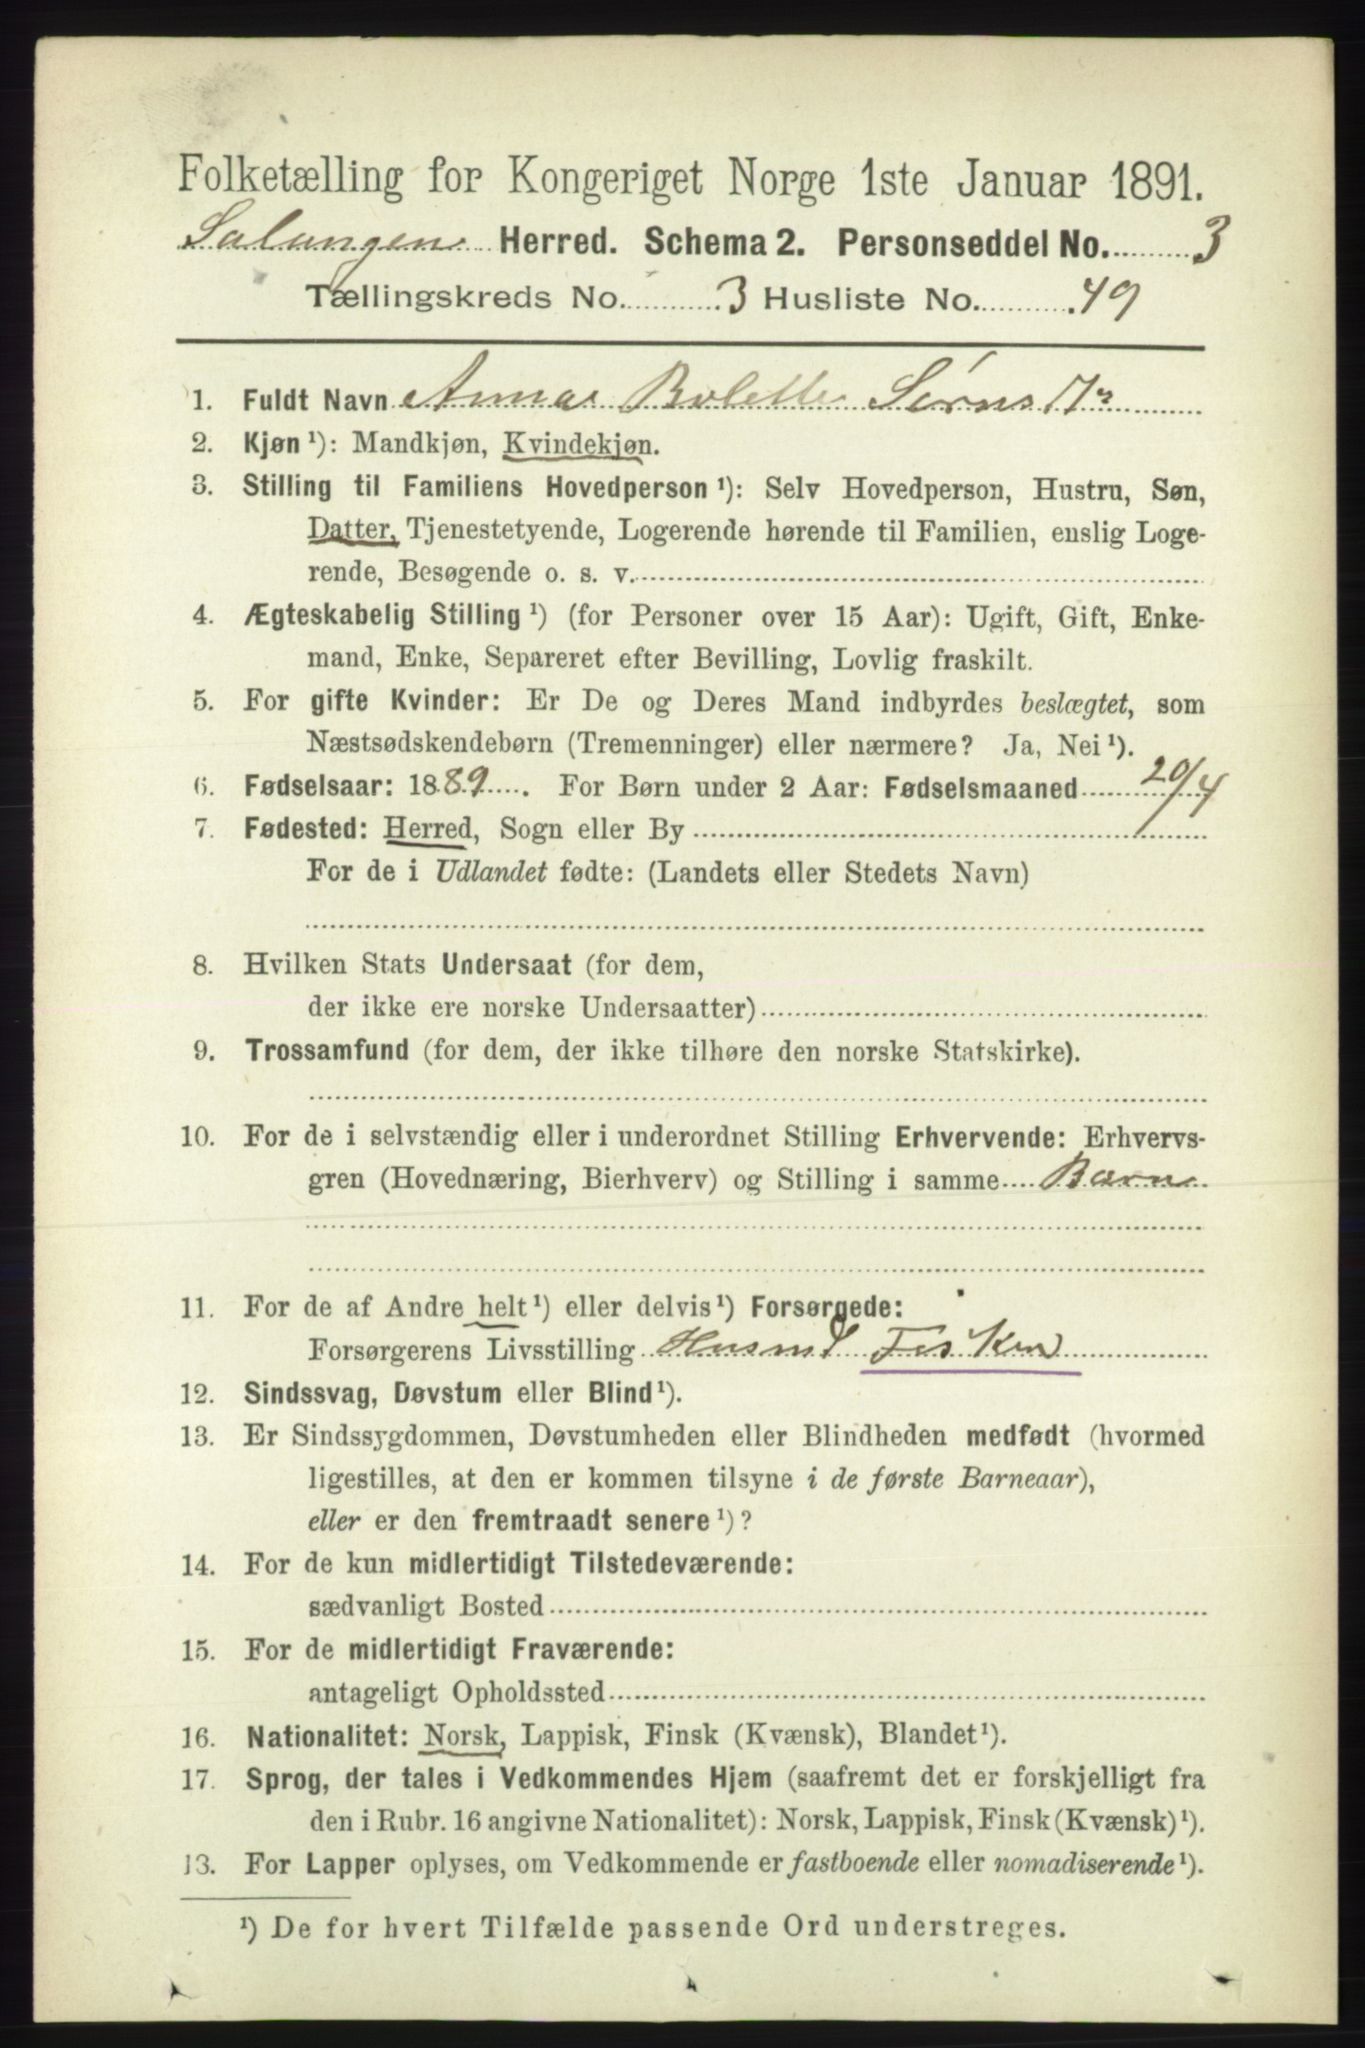 Folketælling for Kongeriget Norge 1ste Januar 1891.
Salangen Herred. Schema 2. Personseddel No. 3
Tællingskreds No. 3 Husliste No. 49
1. Fuldt Navn Anna Bolette Sørns Dr
2. Kjøn ¹): Mandkjøn, Kvindekjøn.
3. Stilling til Familiens Hovedperson ¹): Selv Hovedperson, Hustru, Søn,
Datter, Tjenestetyende, Logerende hørende til Familien, enslig Loge-
rende, Besøgende o. s. v.
4. Ægteskabelig Stilling ¹) (for Personer over 15 Aar): Ugift, Gift, Enke-
mand, Enke, Separeret efter Bevilling, Lovlig fraskilt.
5. For gifte Kvinder: Er De og Deres Mand indbyrdes beslægtet, som
Næstsødskendebørn (Tremenninger) eller nærmere? Ja, Nei ¹).
6. Fødselsaar: 1889. For Børn under 2 Aar: Fødselsmaaned 20/4
7. Fødested: Herred, Sogn eller By
For de i Udlandet fødte: (Landets eller Stedets Navn)
8. Hvilken Stats Undersaat (for dem,
der ikke ere norske Undersaatter)
9. Trossamfund (for dem, der ikke tilhøre den norske Statskirke).
10. For de i selvstændig eller i underordnet Stilling Erhvervende: Erhvervs-
gren (Hovednæring, Bierhverv) og Stilling i samme Barn
11. For de af Andre helt ¹) eller delvis ¹) Forsørgede:
Forsørgerens Livsstilling Husmd Fisker
12. Sindssvag, Døvstum eller Blind ¹).
13. Er Sindssygdommen, Døvstumheden eller Blindheden medfødt (hvormed
ligestilles, at den er kommen tilsyne i de første Barneaar),
eller er den fremtraadt senere ¹)?
14. For de kun midlertidigt Tilstedeværende:
sædvanligt Bosted
15. For de midlertidigt Fraværende:
antageligt Opholdssted
16. Nationalitet: Norsk, Lappisk, Finsk (Kvænsk), Blandet ¹).
17. Sprog, der tales i Vedkommendes Hjem (saafremt det er forskjelligt fra
den i Rubr. 16 angivne Nationalitet): Norsk, Lappisk, Finsk (Kvænsk) ¹).
13. For Lapper oplyses, om Vedkommende er fastboende eller nomadiserende ¹).
¹) De for hvert Tilfælde passende Ord understreges.